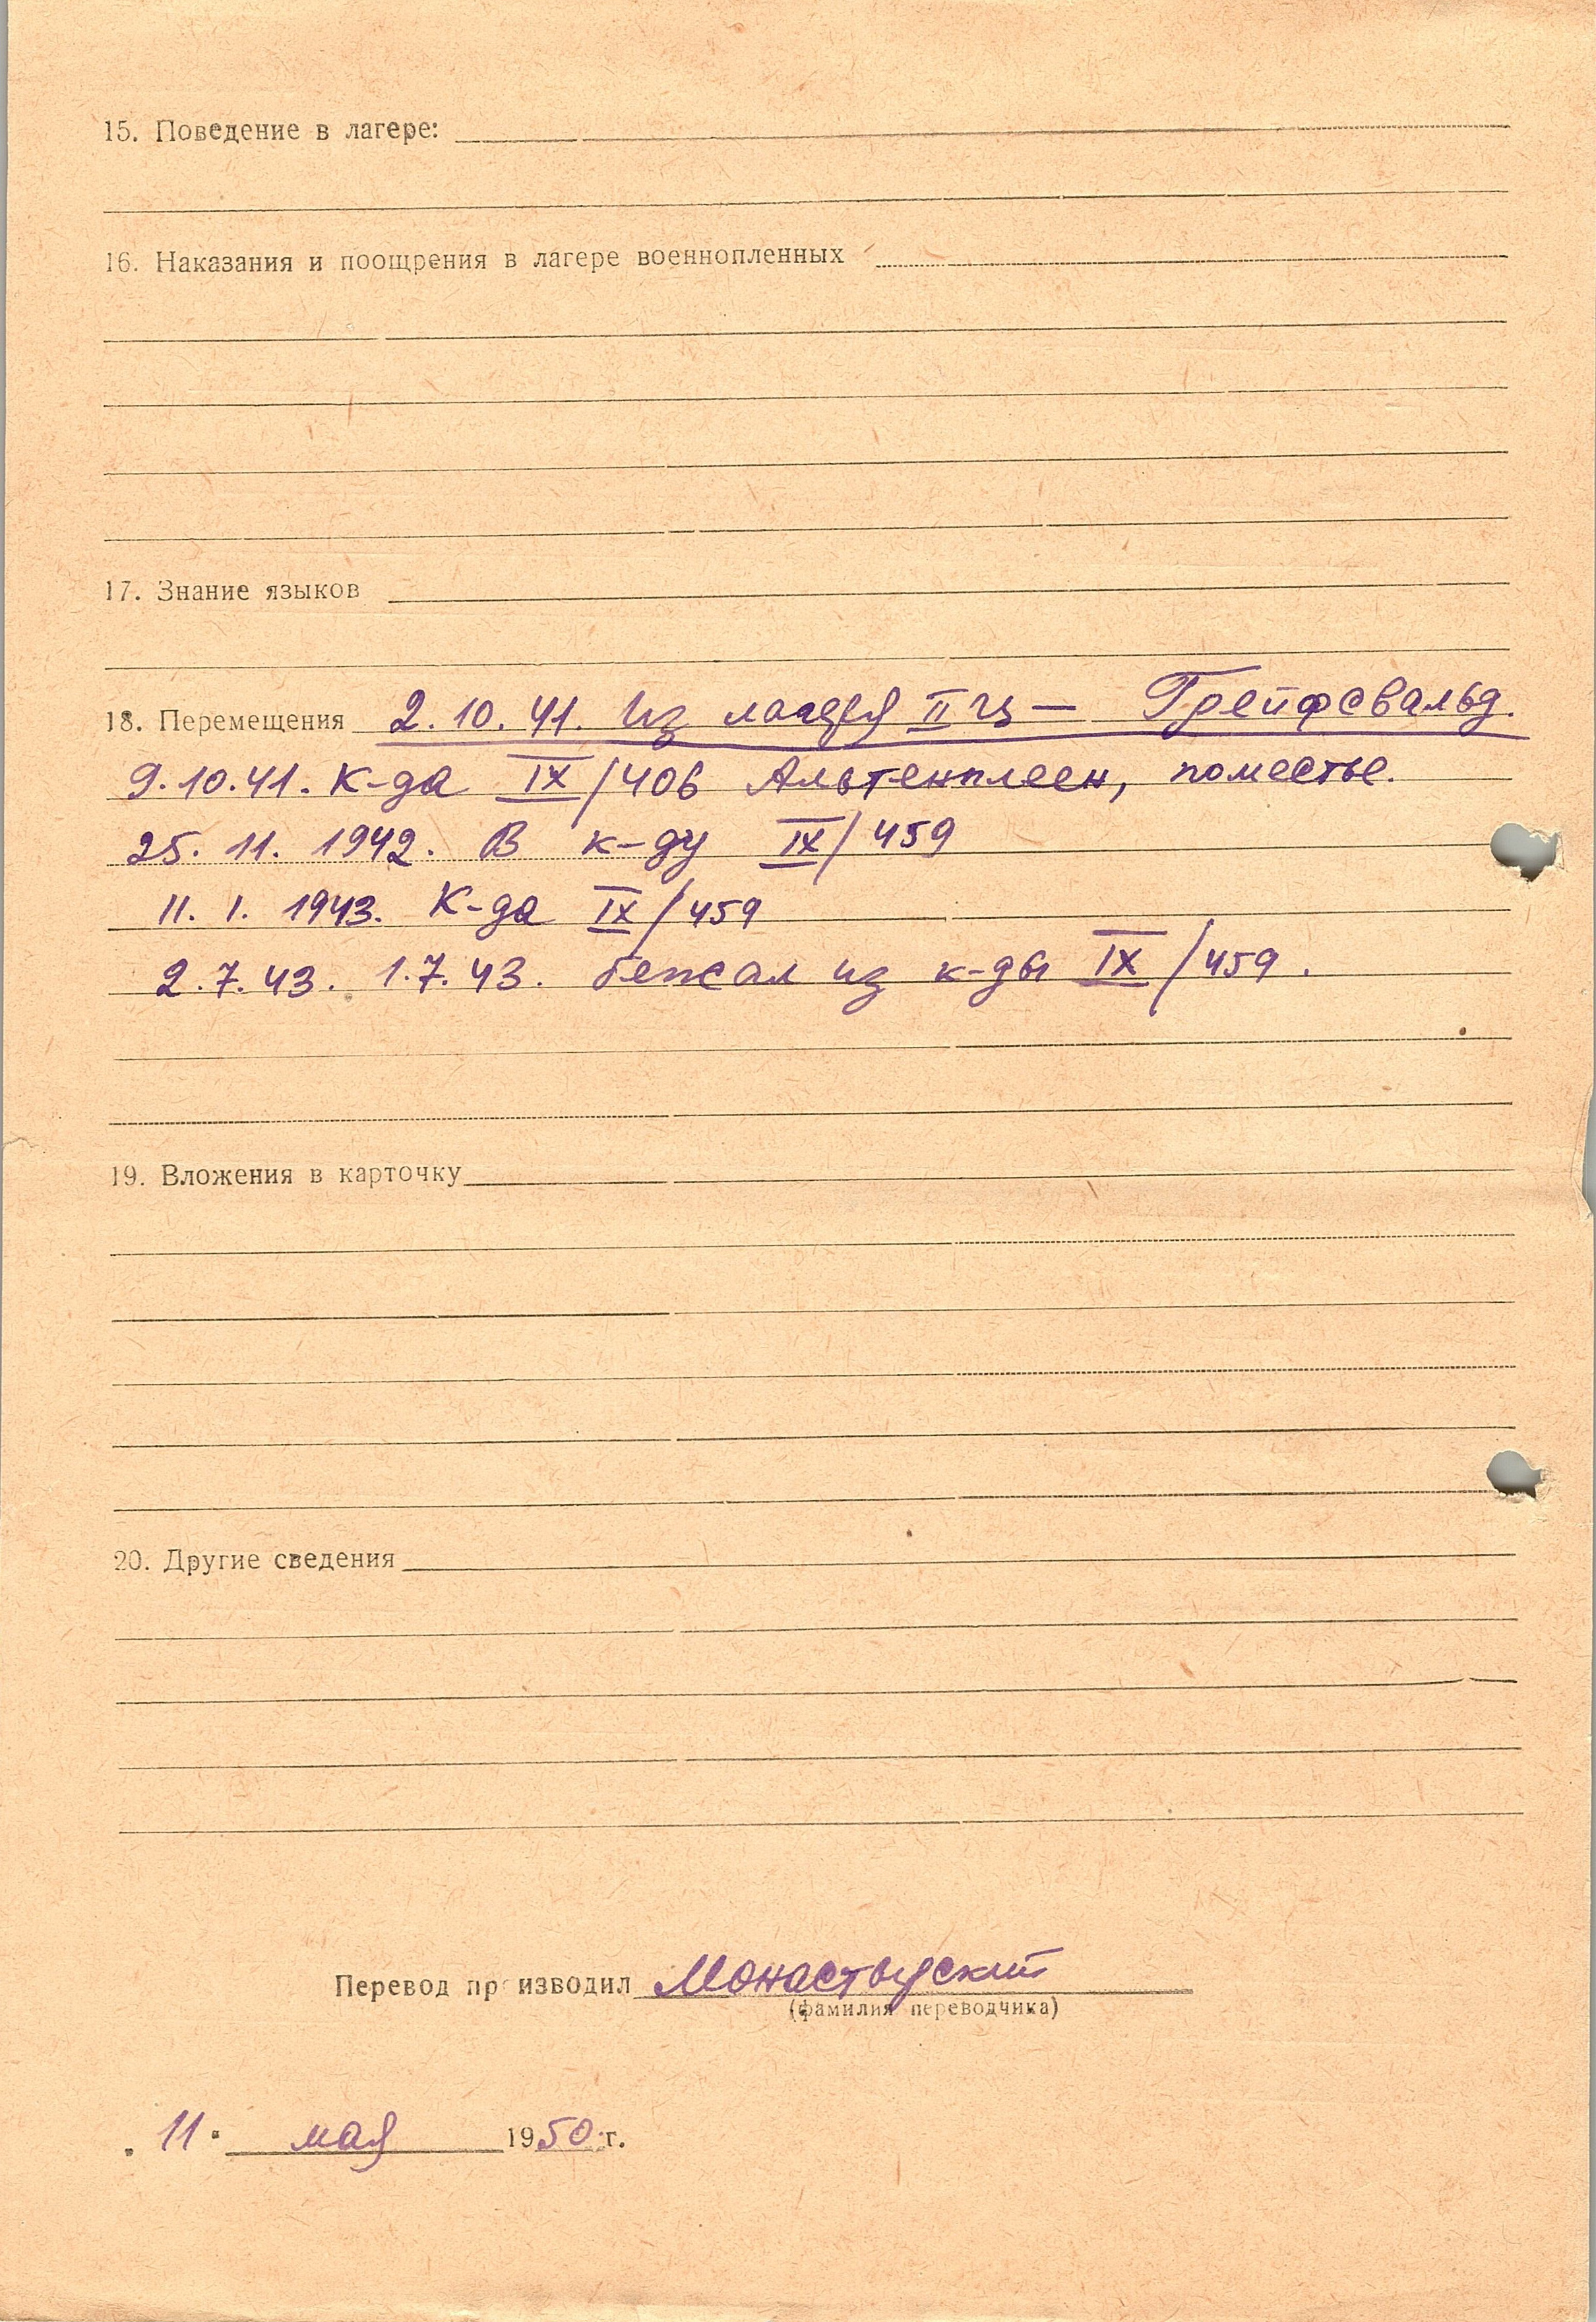 15. Поведение в лагере:
16. Наказания и поощрения в лагере военнопленных
17. Знание языков
18. Перемещения 2.10.41. Из лагеря II Ц — Грейфсвальд.
9.10.41. К-да IX/406 Альтенплеен, поместье.
25. 11. 1942. В к-ду IX/459
11. 1. 1943. К-да IX/459
2.7.43. 1.7.43. бежал из к-ды IX/459.
19. Вложения в карточку
20. Другие сведения
Перевод производил Монастырский
(фамилия переводчика)
"11" мая 1950 г.